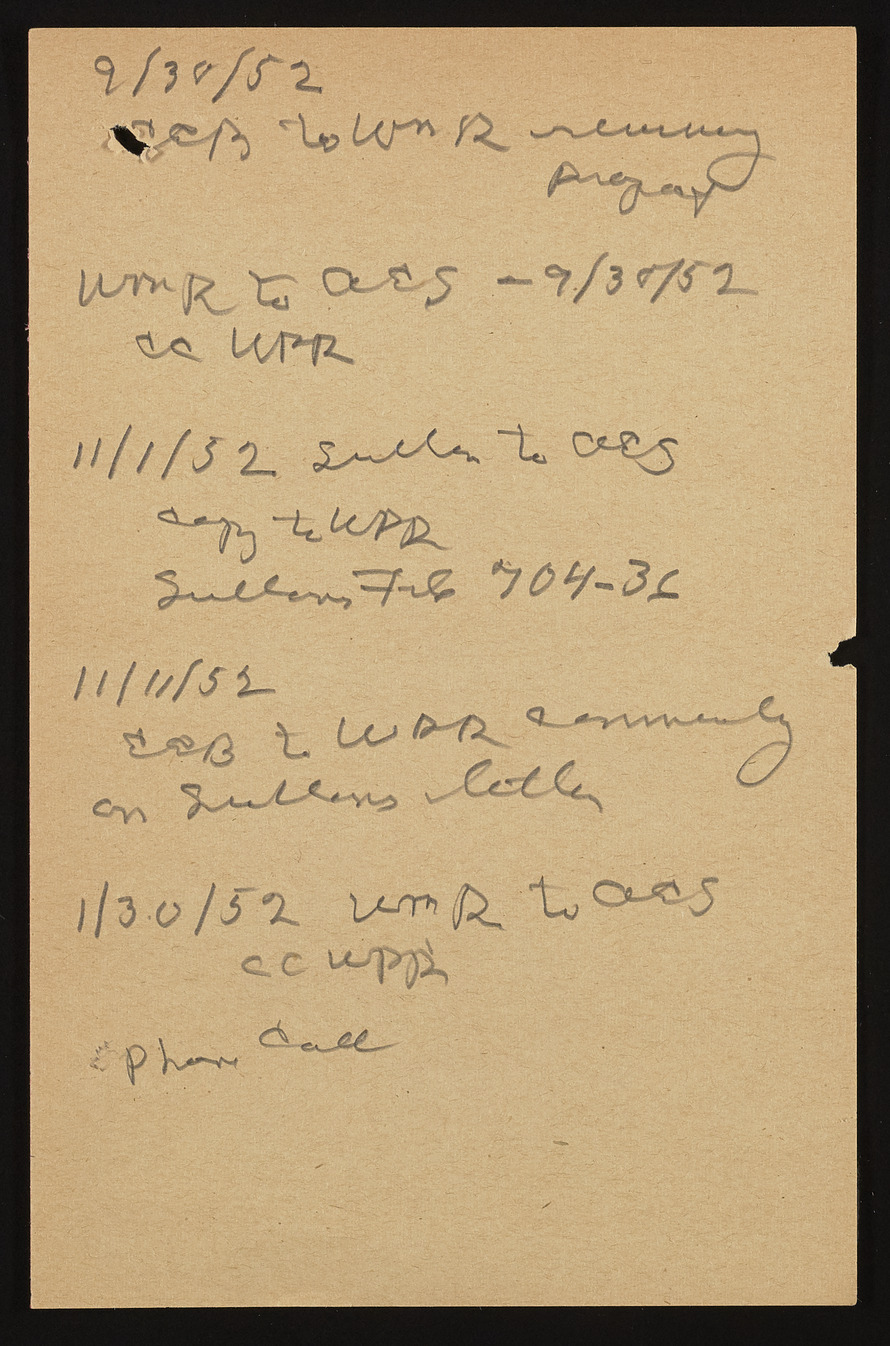 9/30/52
ECB to WMR reviewing
program
WMR to AES - 9/30/52
cc WPR
11/1/52 Sutton to AES
copy to WPR
Suttons File 704-36
11/11/52
ECB to WPR commenting
on Suttons letter
1/30/52 WMR to AES
CC WPR
Phone Call